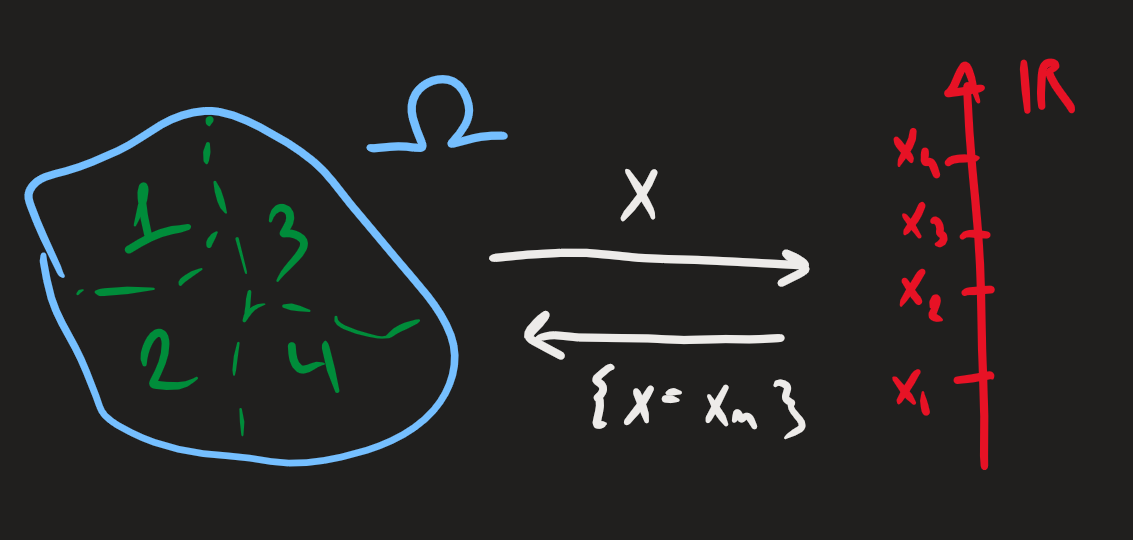 Ω
1 3
2 4
X
{X = xₙ}
ℝ
x₄
x₃
x₂
x₁